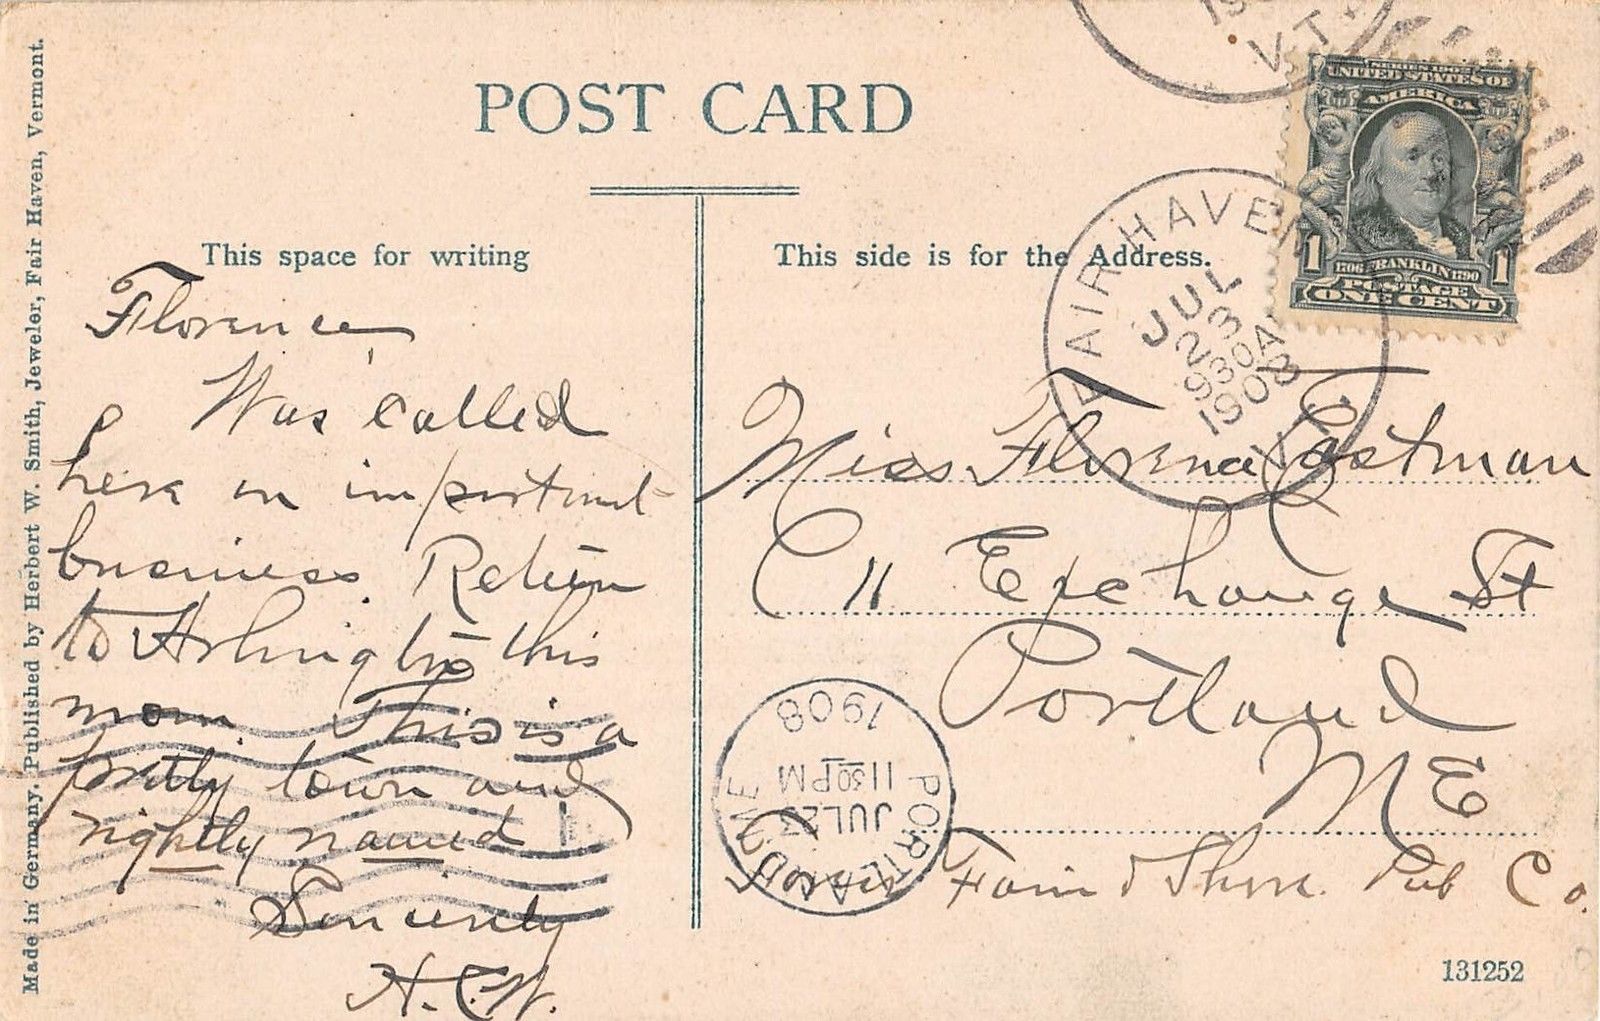 Made in Germany. Published by Herbert W. Smith, Jeweler, Fair Haven, Vermont.
POST CARD
This space for writing
This side is for the Address.
Florence,
Was called
here on important
business. Return
to Arlington this
morn. This is a
pretty town and
rightly named
Sincerely
H.C.W.
VT.
SERIES 1902
UNITED STATES OF
AMERICA
1 1
1706 FRANKLIN 1790
POSTAGE
ONE CENT
FAIR HAVEN
JUL
23
930A
1908
VT.
Miss Florence Eastman
C 11 Exchange St
Portland
ME
Farm & Shore Pub Co.
PORTLAND, ME
JUL 23
11 30 PM
1908
131252